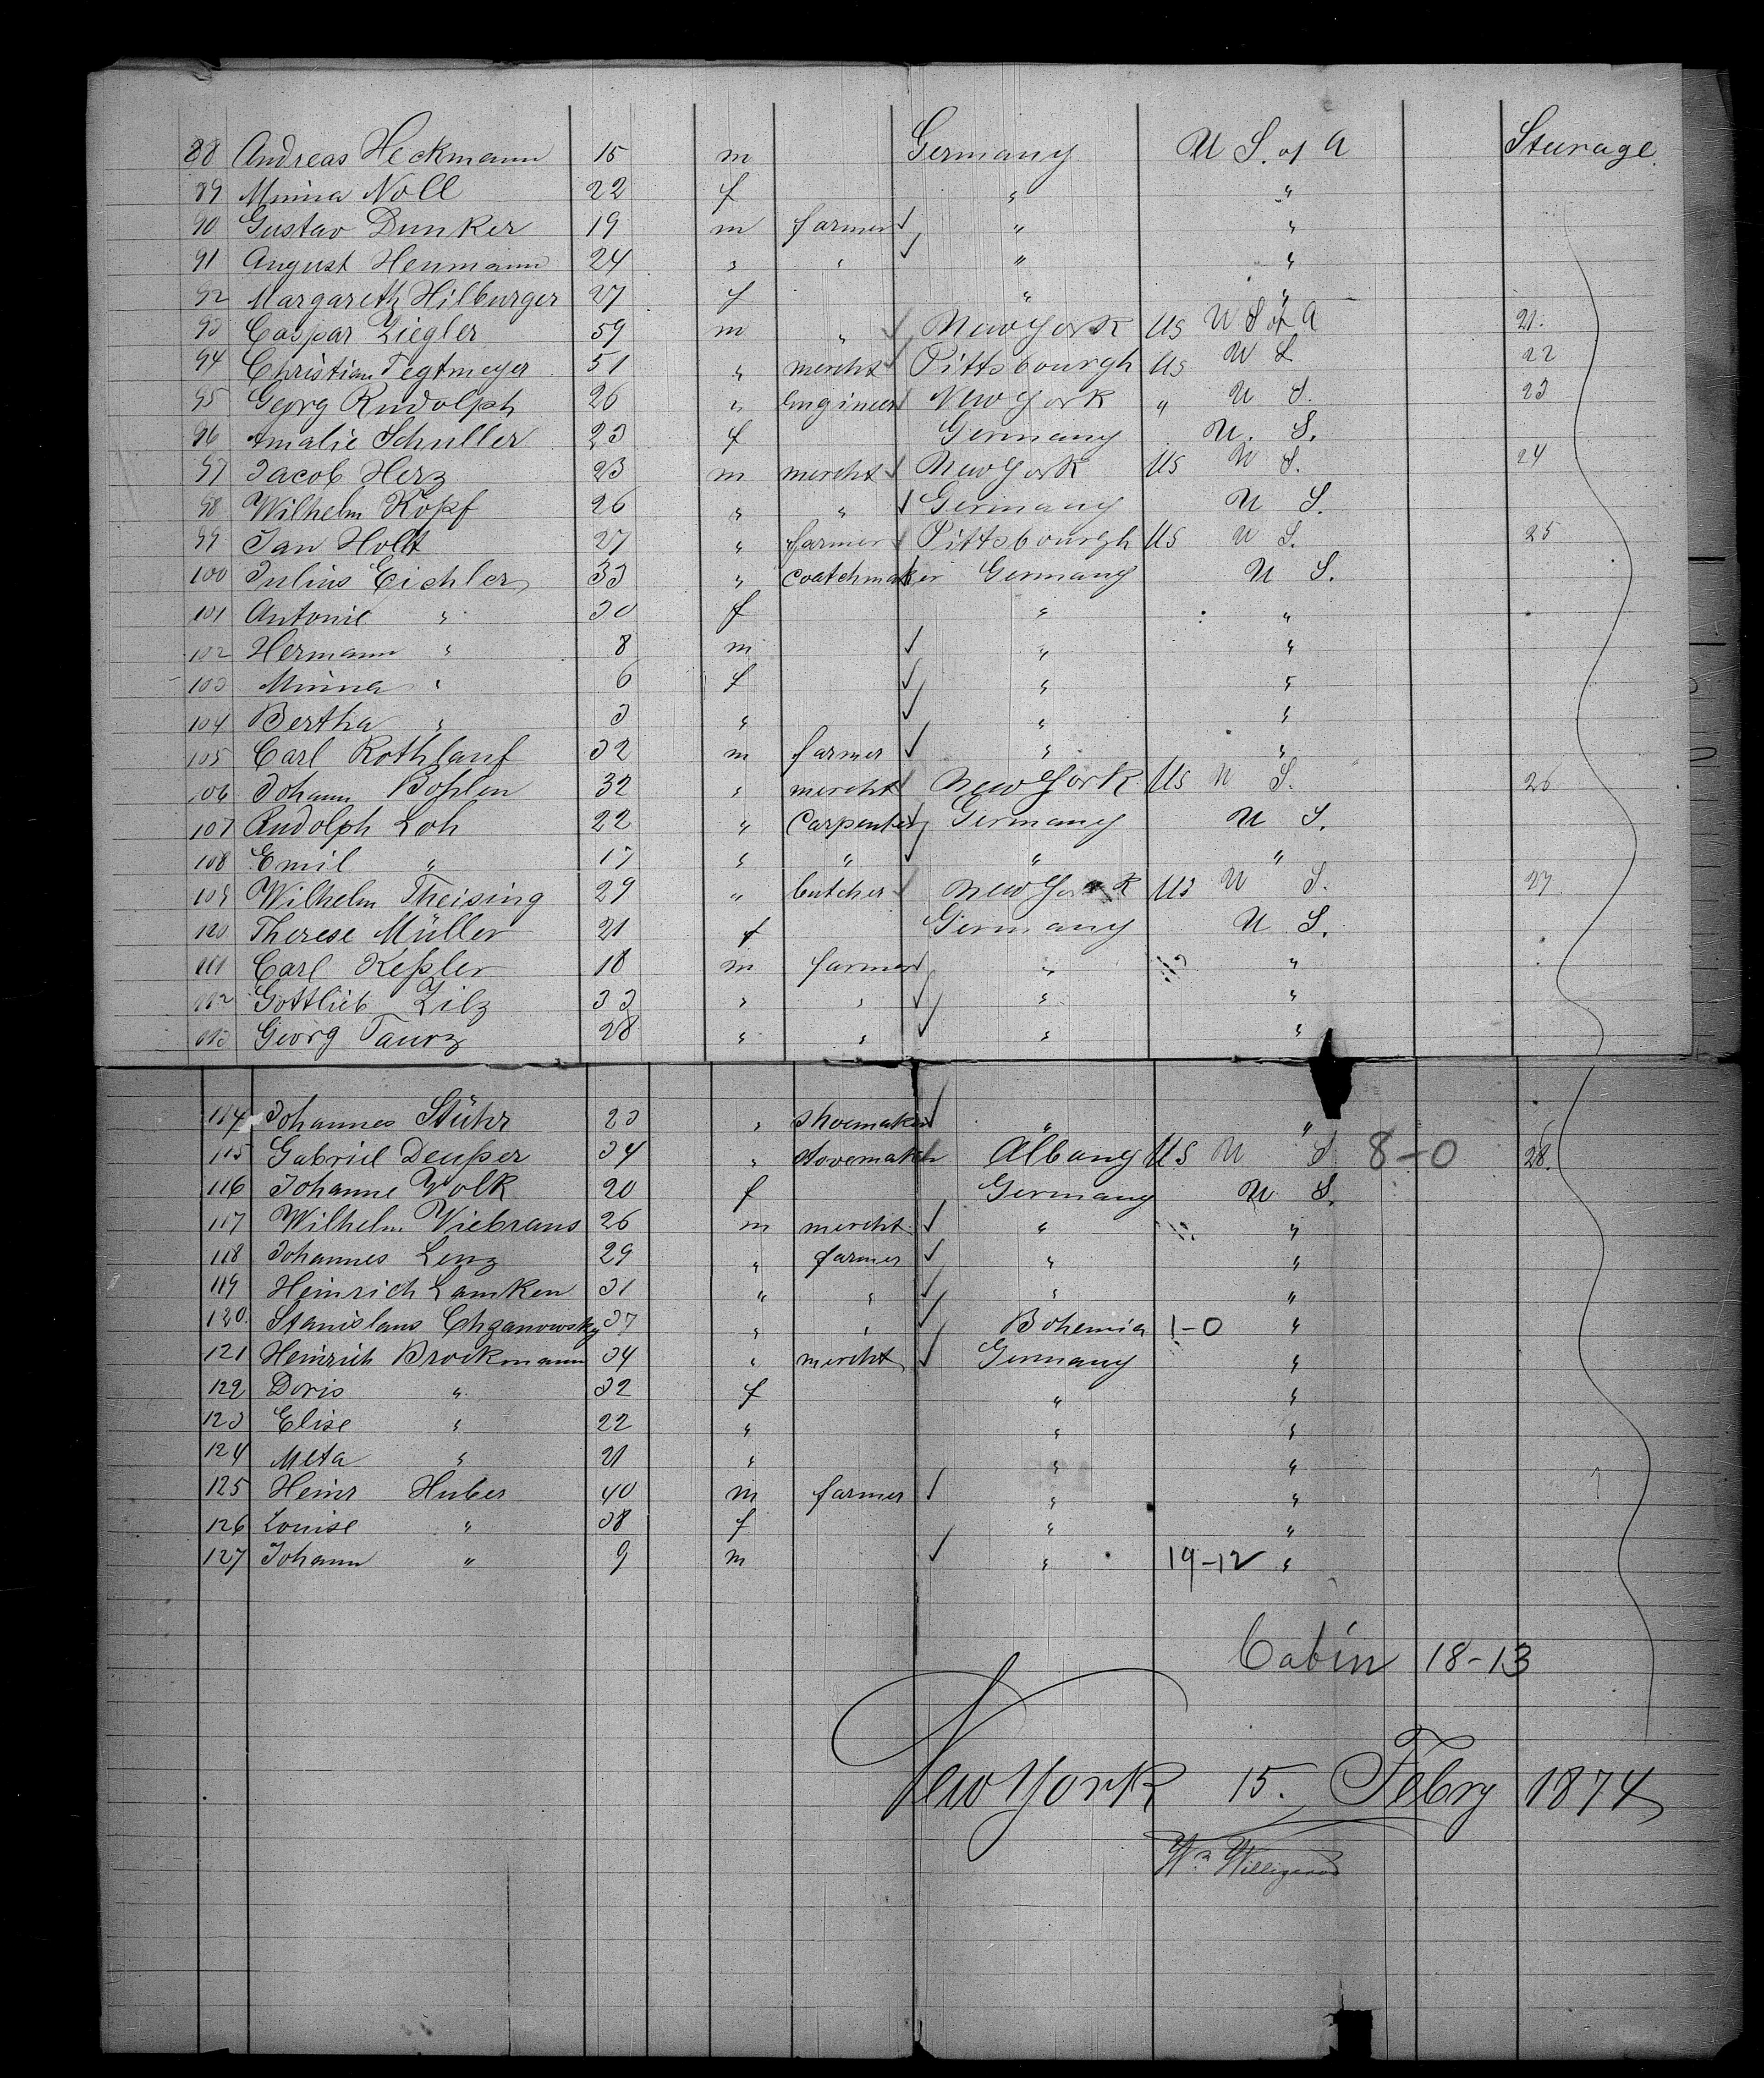 88 Andreas Heckmann 15 m Germany U S. of A Sturage.
89 Minna Noll 22 f " "
90 Gustav Dunker 19 m farmer ✓ " "
91 August Henmann 24 " " ✓ " "
92 Margareth Hilburger 27 f " "
93 Caspar Ziegler 59 m " ✓ New York US U S of A 21.
94 Christian Tegtmeyer 51 " mercht ✓ Pittsbourgh US U S 22
95 Georg Rudolph 26 " Engineer ✓ New York " U S. 23
96 Amalie Schuller 23 f Germany U. S.
97 Jacob Herz 23 m mercht ✓ New York US U S. 24
98 Wilhelm Kopf 26 " " ✓ Germany U S.
99 Jan Holt 27 " farmer ✓ Pittsbourgh US U S. 25
100 Julius Eichler 33 " Coatchmaker ✓ Germany U S.
101 Antonie " 30 f " "
102 Hermann " 8 m ✓ " "
103 Minna " 6 f ✓ " "
104 Bertha " 3 " ✓ " "
105 Carl Rothlauf 32 m farmer ✓ " "
106 Johann Bohlen 32 " mercht ✓ New York US U S. 26
107 Rudolph Loh 22 " Carpenter ✓ Germany U S.
108 Emil " 17 " " ✓ " "
109 Wilhelm Theising 29 " butcher ✓ New York US U S. 27
120 Therese Müller 21 f Germany U S.
111 Carl Keßler 18 m farmer ✓ " "
112 Gottlieb Zilz 33 " " ✓ " "
113 Georg Taurz 28 " " ✓ " "
114 Johannes Stühr 23 " Shoemaker ✓ " "
115 Gabriel Deußer 34 " Stovemaker Albany US U S 8-0 28.
116 Johanne Volk 20 f Germany U S.
117 Wilhelm Viebrans 26 m mercht ✓ " "
118 Johannes Lenz 29 " farmer ✓ " "
119 Heinrich Lamken 31 " " ✓ " "
120. Stanislaus Chzanowsky 37 " " ✓ Bohemia 1-0 "
121 Heinrich Brockmann 34 " mercht ✓ Germany "
122 Doris " 32 f " "
123 Elise " 22 " " "
124 Meta " 21 " " "
125 Heinr Huber 40 m farmer ✓ " "
126 Louise " 38 f " "
127 Johann " 9 m ✓ " 19-12 "
Cabin 18-13
New York 15. Febry 1874